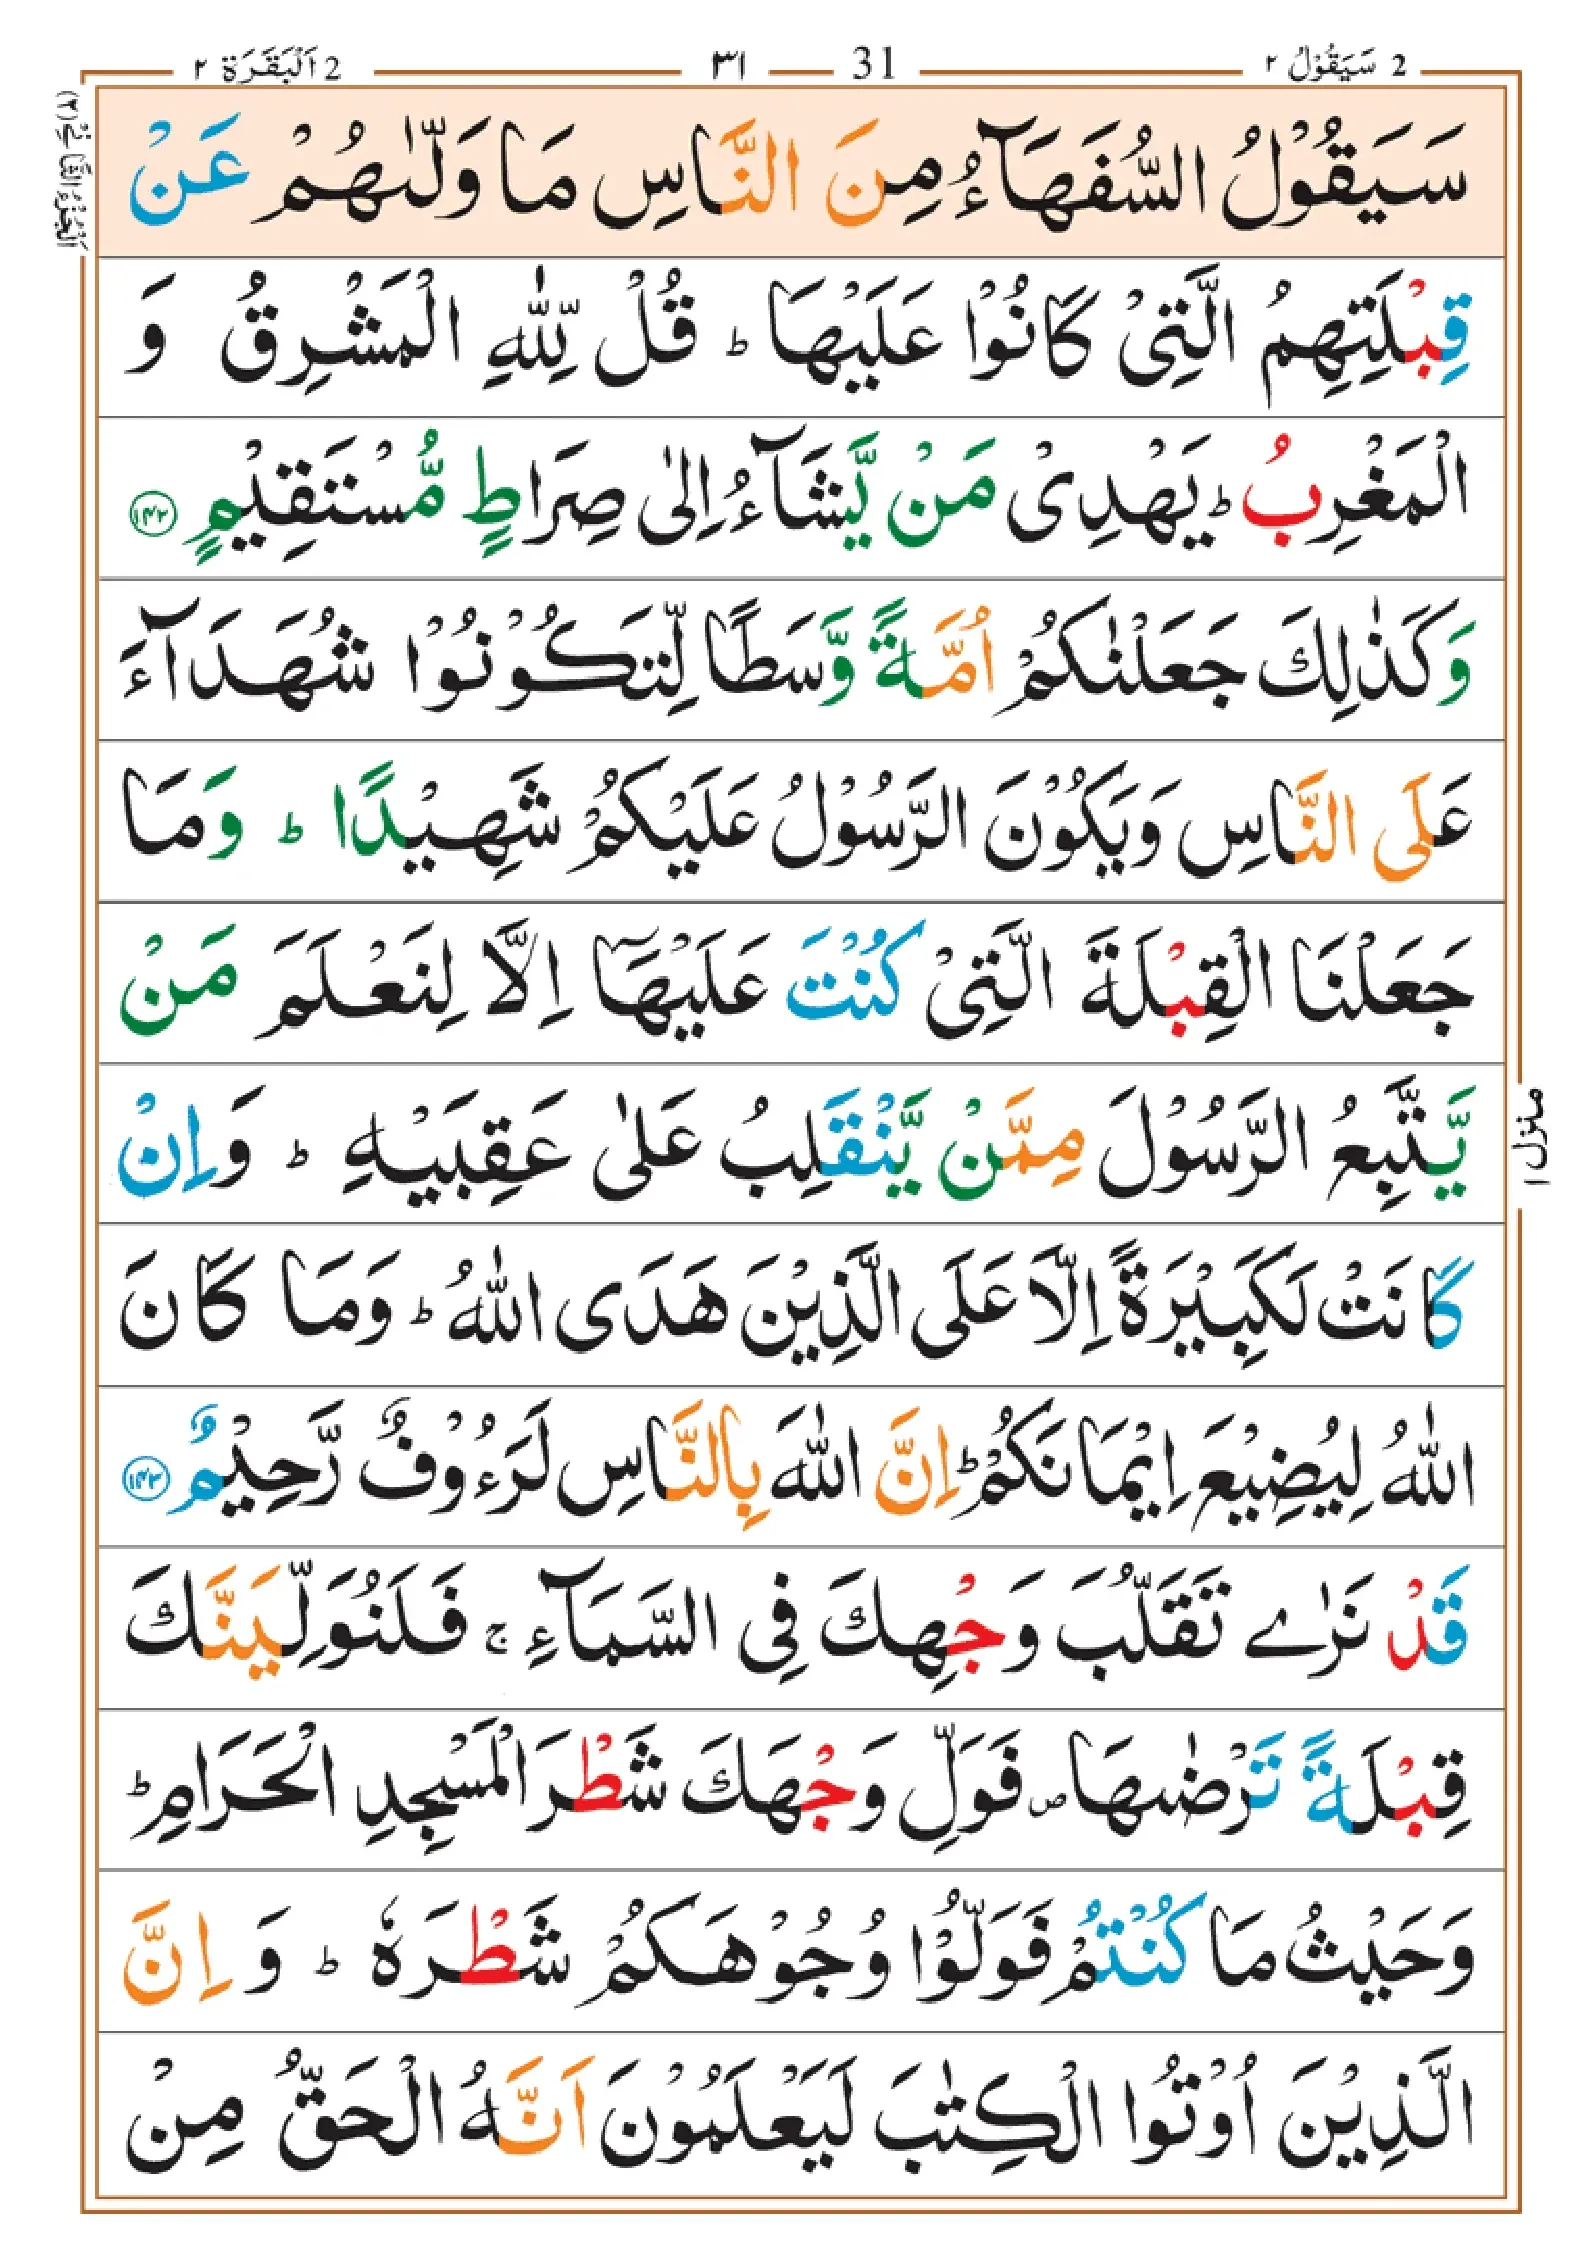 2 سَيَقُوْلُ ٢
31 ٣١
2 اَلْبَقَرَة ٢
اَلْجُزْءُ الثَّانِيْ (٢)
سَيَقُوْلُ السُّفَهَآءُ مِنَ النَّاسِ مَا وَلّٰىهُمْ عَنْ
قِبْلَتِهِمُ الَّتِىْ كَانُوْا عَلَيْهَا ؕ قُلْ لِّلّٰهِ الْمَشْرِقُ وَ
الْمَغْرِبُ ؕ يَهْدِىْ مَنْ يَّشَآءُ اِلٰى صِرَاطٍ مُّسْتَقِيْمٍ ۝۱۴۲
وَكَذٰلِكَ جَعَلْنٰكُمْ اُمَّةً وَّسَطًا لِّتَكُوْنُوْا شُهَدَآءَ
عَلَى النَّاسِ وَيَكُوْنَ الرَّسُوْلُ عَلَيْكُمْ شَهِيْدًا ؕ وَمَا
جَعَلْنَا الْقِبْلَةَ الَّتِىْ كُنْتَ عَلَيْهَآ اِلَّا لِنَعْلَمَ مَنْ
يَّتَّبِعُ الرَّسُوْلَ مِمَّنْ يَّنْقَلِبُ عَلٰى عَقِبَيْهِ ؕ وَاِنْ
كَانَتْ لَكَبِيْرَةً اِلَّا عَلَى الَّذِيْنَ هَدَى اللّٰهُ ؕ وَمَا كَانَ
اللّٰهُ لِيُضِيْعَ اِيْمَانَكُمْ ؕ اِنَّ اللّٰهَ بِالنَّاسِ لَرَءُوْفٌ رَّحِيْمٌ ۝۱۴۳
قَدْ نَرٰى تَقَلُّبَ وَجْهِكَ فِى السَّمَآءِ ۚ فَلَنُوَلِّيَنَّكَ
قِبْلَةً تَرْضٰىهَا ۪ فَوَلِّ وَجْهَكَ شَطْرَ الْمَسْجِدِ الْحَرَامِ ؕ
وَحَيْثُ مَا كُنْتُمْ فَوَلُّوْا وُجُوْهَكُمْ شَطْرَهٗ ؕ وَ اِنَّ
الَّذِيْنَ اُوْتُوا الْكِتٰبَ لَيَعْلَمُوْنَ اَنَّهُ الْحَقُّ مِنْ
منزل ١